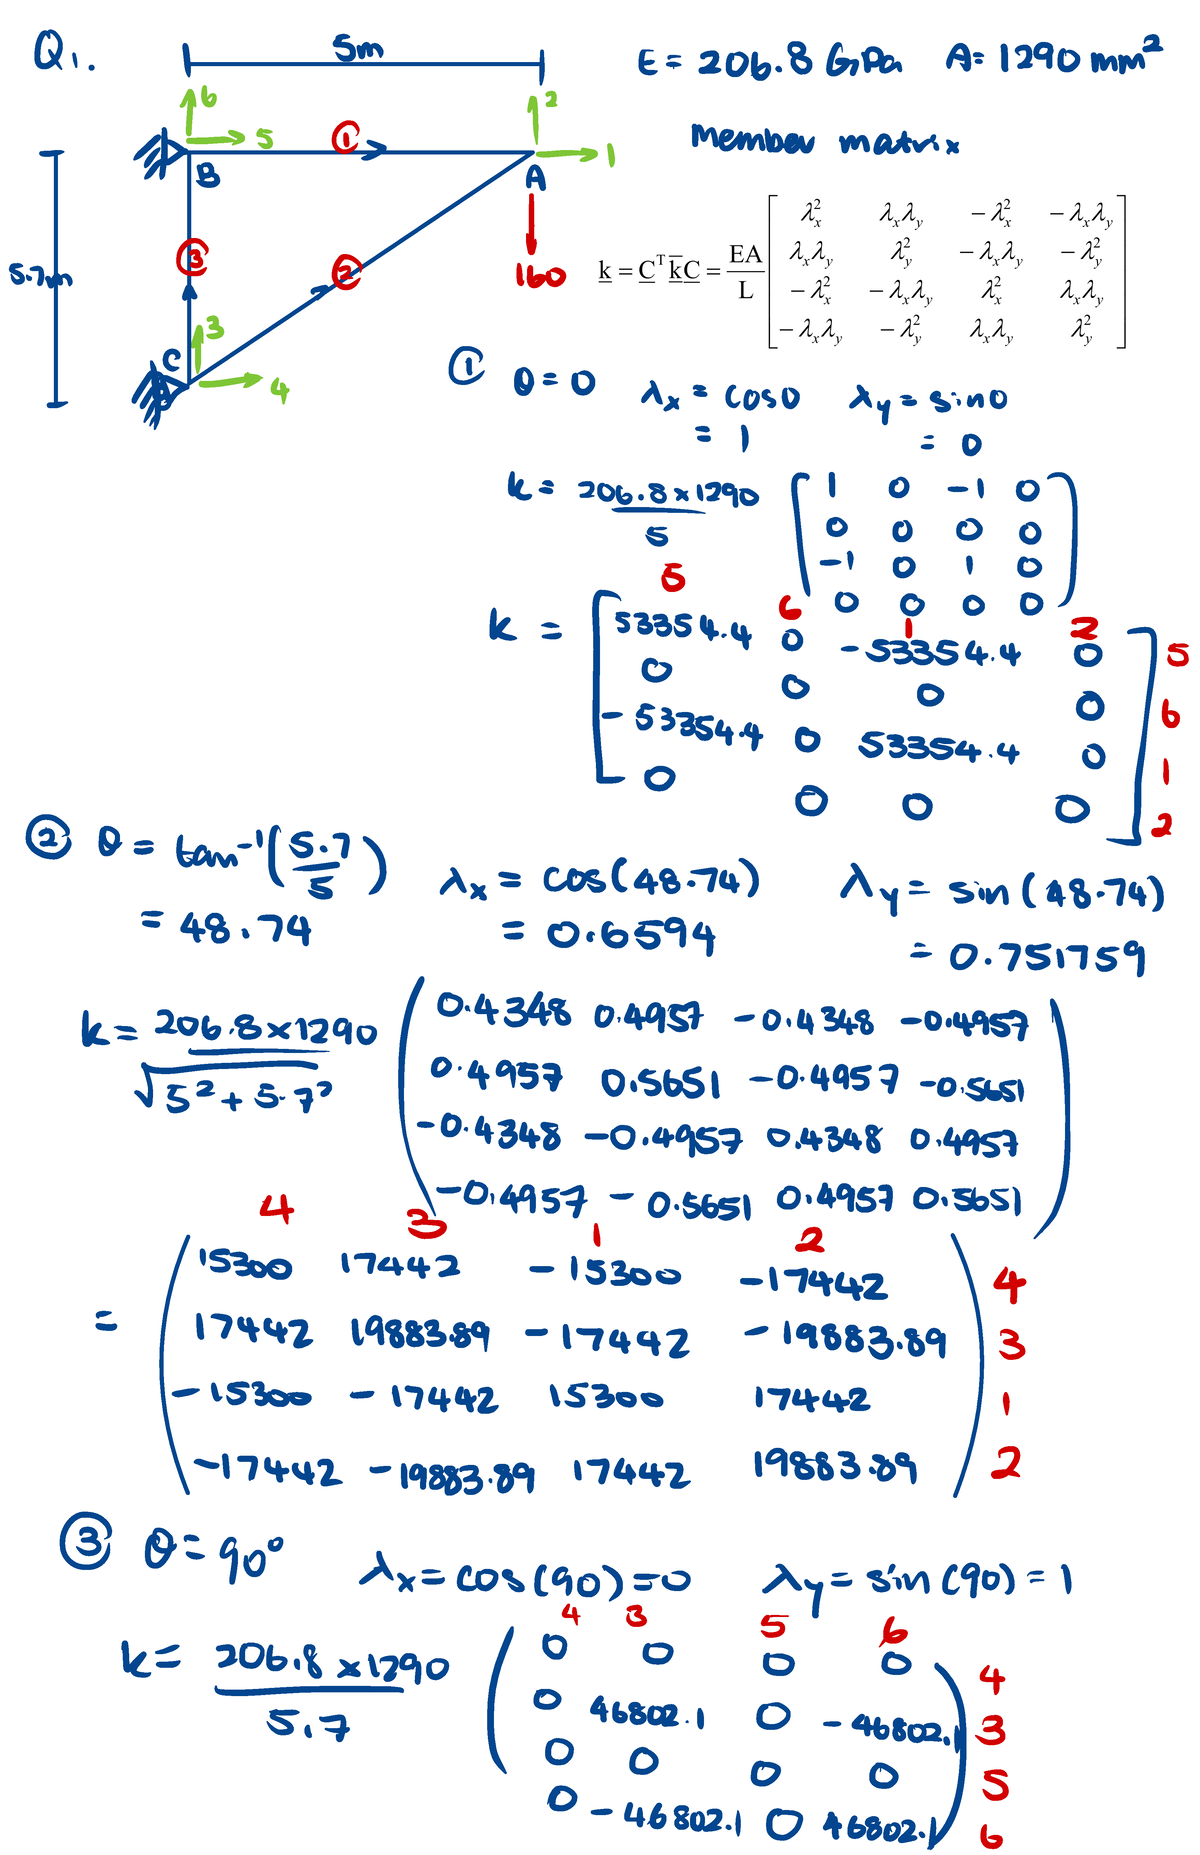 Q1.
5m
E = 206.8 GPa A = 1290 mm²
6
5
①
2
1
B
A
Member matrix
5.7m
③
②
160
k = Cᵀk̄C = EA/L [ λx² λxλy -λx² -λxλy
λxλy λy² -λxλy -λy²
-λx² -λxλy λx² λxλy
-λxλy -λy² λxλy λy² ]
C
3
4
① θ = 0 λx = cos0 λy = sin0
= 1 = 0
k = 206.8 x 1290 / 5 [ 1 0 -1 0
0 0 0 0
-1 0 1 0
0 0 0 0 ]
5 6 1 2
k = [ 53354.4 0 -53354.4 0 ] 5
0 0 0 0 6
-53354.4 0 53354.4 0 1
0 0 0 0 2
② θ = tan⁻¹(5.7/5) λx = cos(48.74) λy = sin(48.74)
= 48.74 = 0.6594 = 0.751759
k = 206.8 x 1290 / √5² + 5.7² ( 0.4348 0.4957 -0.4348 -0.4957
0.4957 0.5651 -0.4957 -0.5651
-0.4348 -0.4957 0.4348 0.4957
-0.4957 -0.5651 0.4957 0.5651 )
4 3 1 2
= ( 15300 17442 -15300 -17442 ) 4
17442 19883.89 -17442 -19883.89 3
-15300 -17442 15300 17442 1
-17442 -19883.89 17442 19883.89 2
③ θ = 90° λx = cos(90) = 0 λy = sin(90) = 1
4 3 5 6
k = 206.8 x 1290 / 5.7 ( 0 0 0 0 ) 4
0 46802.1 0 -46802.1 3
0 0 0 0 5
0 -46802.1 0 46802.1 6